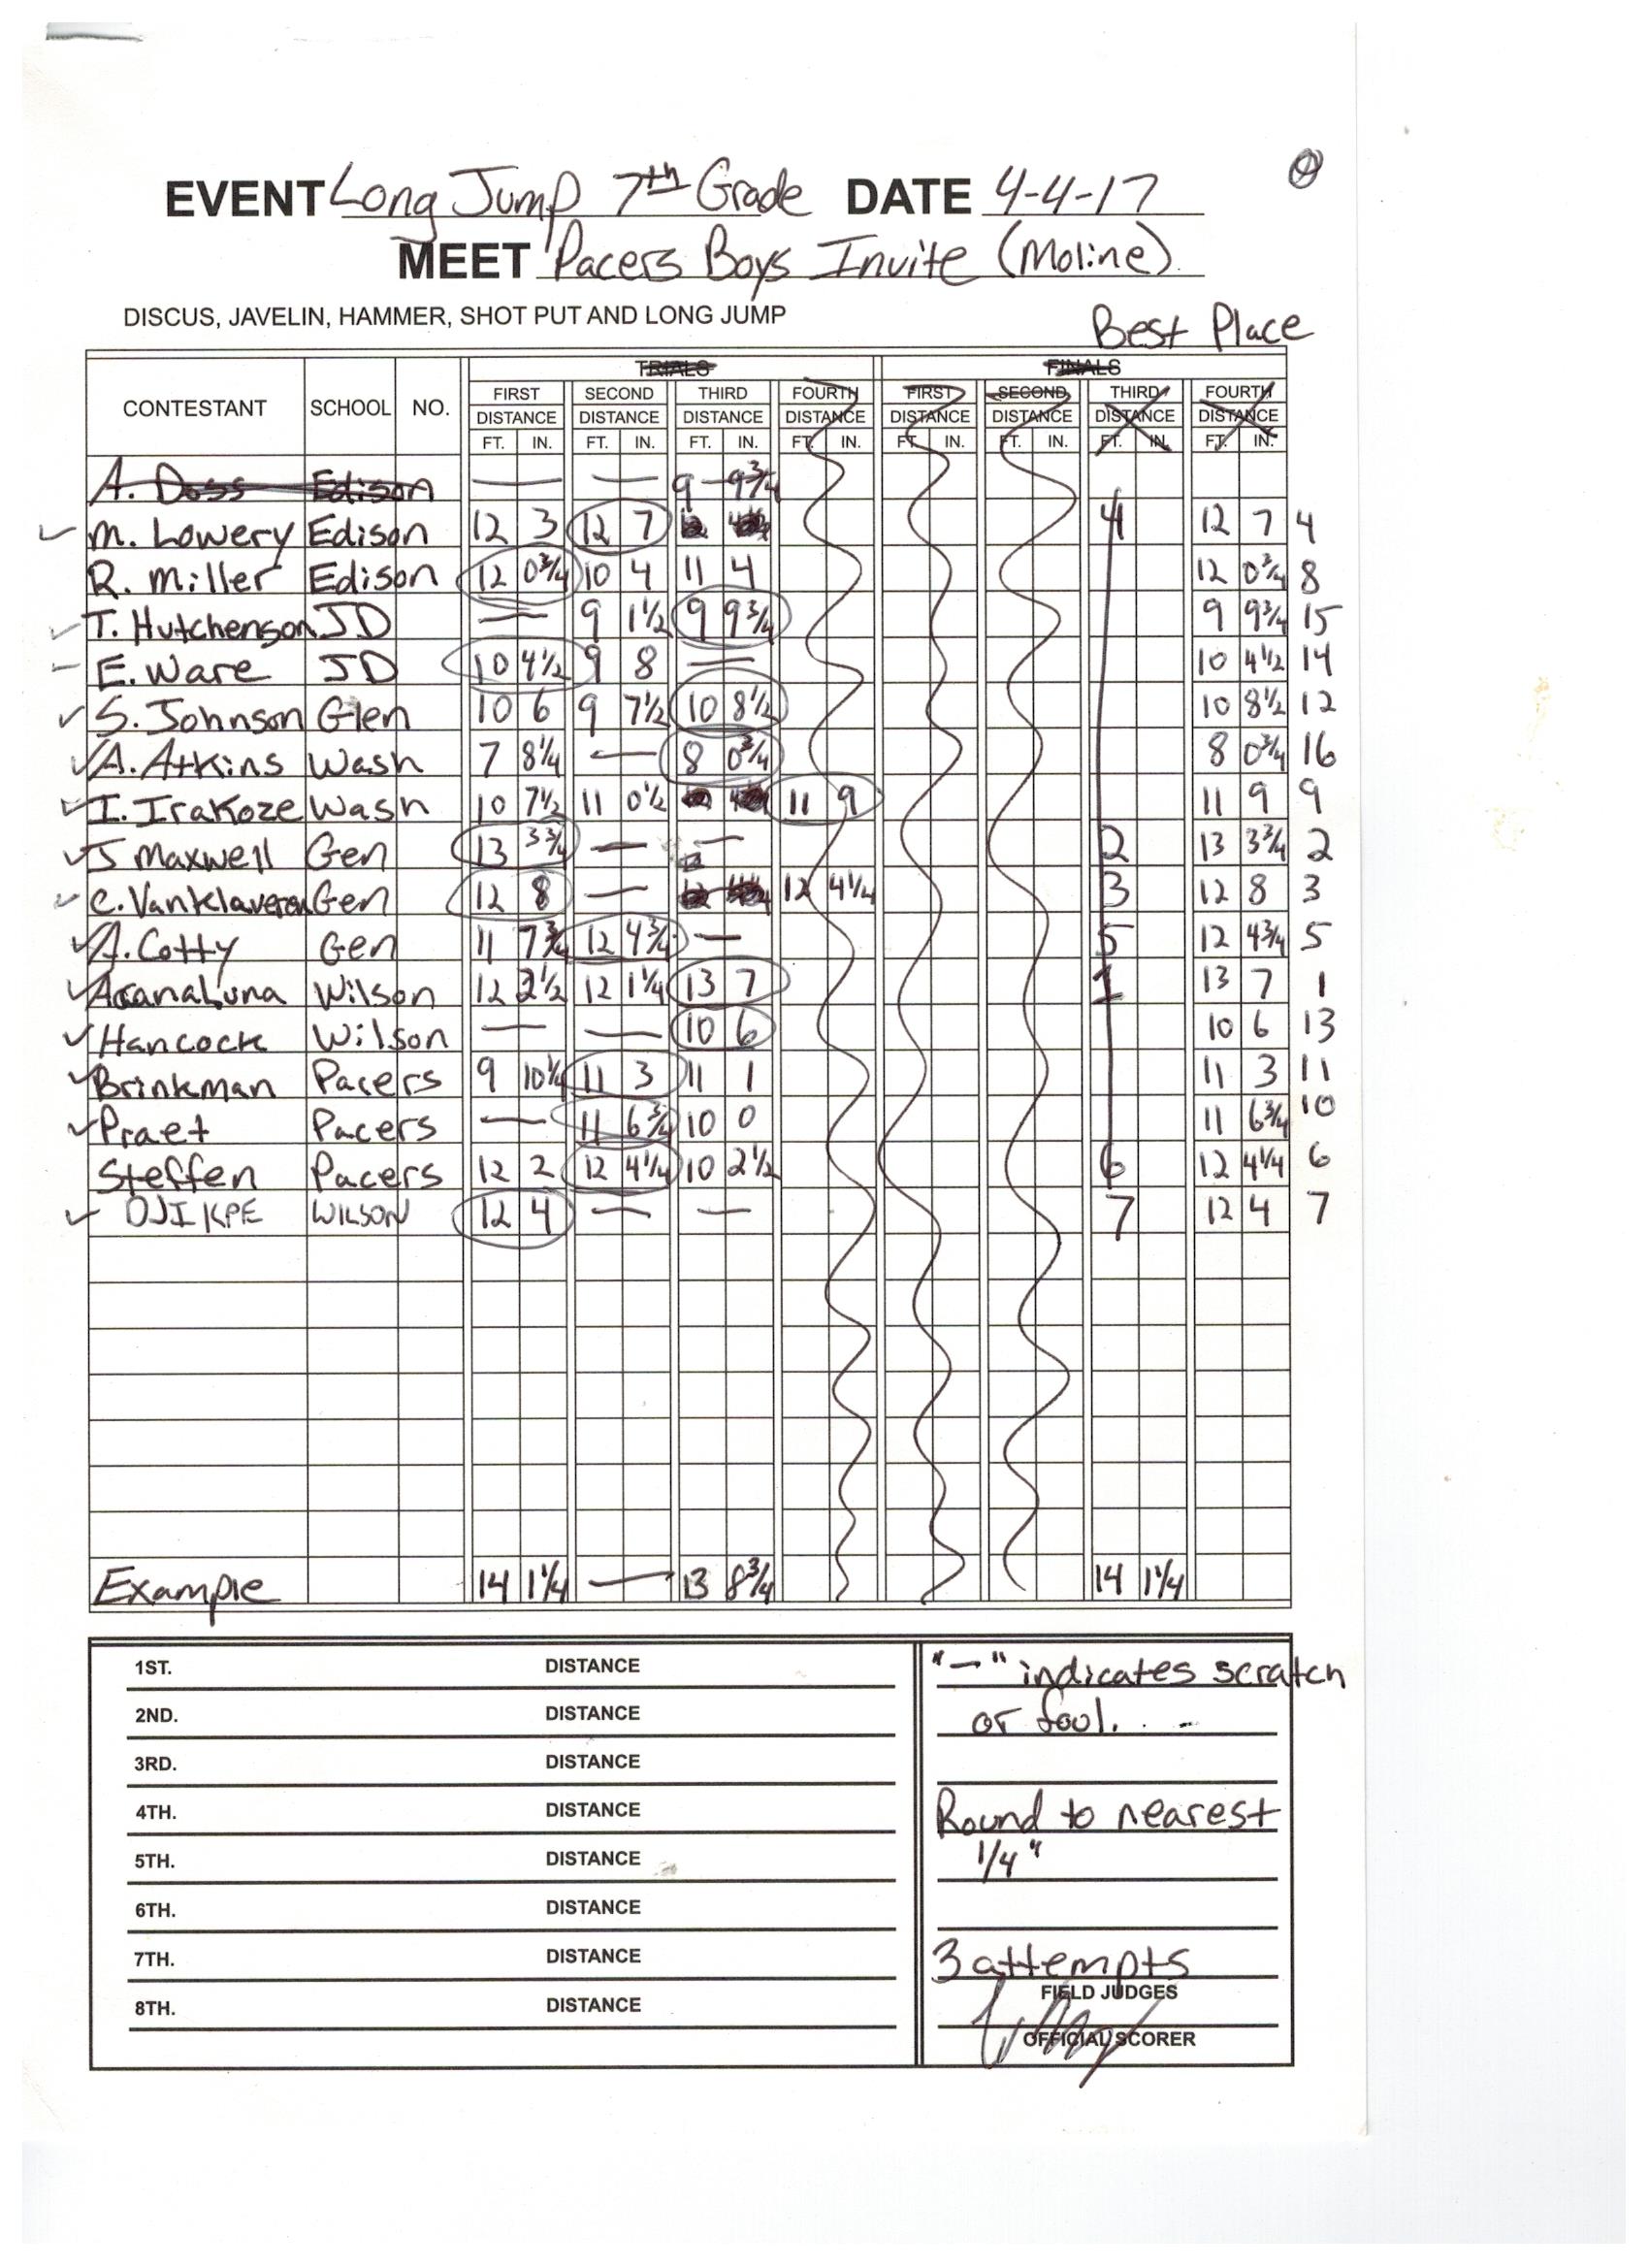 EVENT Long Jump 7th Grade DATE 4-4-17
MEET Pacers Boys Invite (Moline)
DISCUS, JAVELIN, HAMMER, SHOT PUT AND LONG JUMP
Best Place
TRIALS FINALS
CONTESTANT SCHOOL NO. FIRST SECOND THIRD FOURTH FIRST SECOND THIRD FOURTH
DISTANCE DISTANCE DISTANCE DISTANCE DISTANCE DISTANCE DISTANCE DISTANCE
FT. IN. FT. IN. FT. IN. FT. IN. FT. IN. FT. IN. FT. IN. FT. IN.
A. Doss Edison — — 9 9 3/4
✓ M. Lowery Edison 12 3 12 7 4 12 7 4
R. Miller Edison 12 0 3/4 10 4 11 4 12 0 3/4 8
✓ T. Hutchenson JD — 9 1 1/2 9 9 3/4 9 9 3/4 15
E. Ware JD 10 4 1/2 9 8 — 10 4 1/2 14
✓ S. Johnson Glen 10 6 9 7 1/2 10 8 1/2 10 8 1/2 12
✓ A. Atkins Wash 7 8 1/4 — 8 0 3/4 8 0 3/4 16
✓ I. Irakoze Wash 10 7 1/2 11 0 1/2 11 9 11 9 9
✓ J Maxwell Gen 13 3 3/4 — — 2 13 3 3/4 2
✓ C. VanKlaveren Gen 12 8 — 12 4 1/4 3 12 8 3
✓ A. Cotty Gen 11 7 3/4 12 4 3/4 — 5 12 4 3/4 5
✓ AranaLuna Wilson 12 2 1/2 12 1 1/4 13 7 1 13 7 1
✓ Hancock Wilson — — 10 6 10 6 13
✓ Brinkman Pacers 9 10 1/4 11 3 11 1 11 3 11
✓ Praet Pacers — 11 6 3/4 10 0 11 6 3/4 10
Steffen Pacers 12 2 12 4 1/4 10 2 1/2 6 12 4 1/4 6
✓ OJIKPE WILSON 12 4 — — 7 12 4 7
Example 14 1 1/4 — 13 8 3/4 14 1 1/4
1ST. DISTANCE
2ND. DISTANCE
3RD. DISTANCE
4TH. DISTANCE
5TH. DISTANCE
6TH. DISTANCE
7TH. DISTANCE
8TH. DISTANCE
"—" indicates scratch
or foul.
Round to nearest
1/4"
3 attempts
FIELD JUDGES
OFFICIAL SCORER